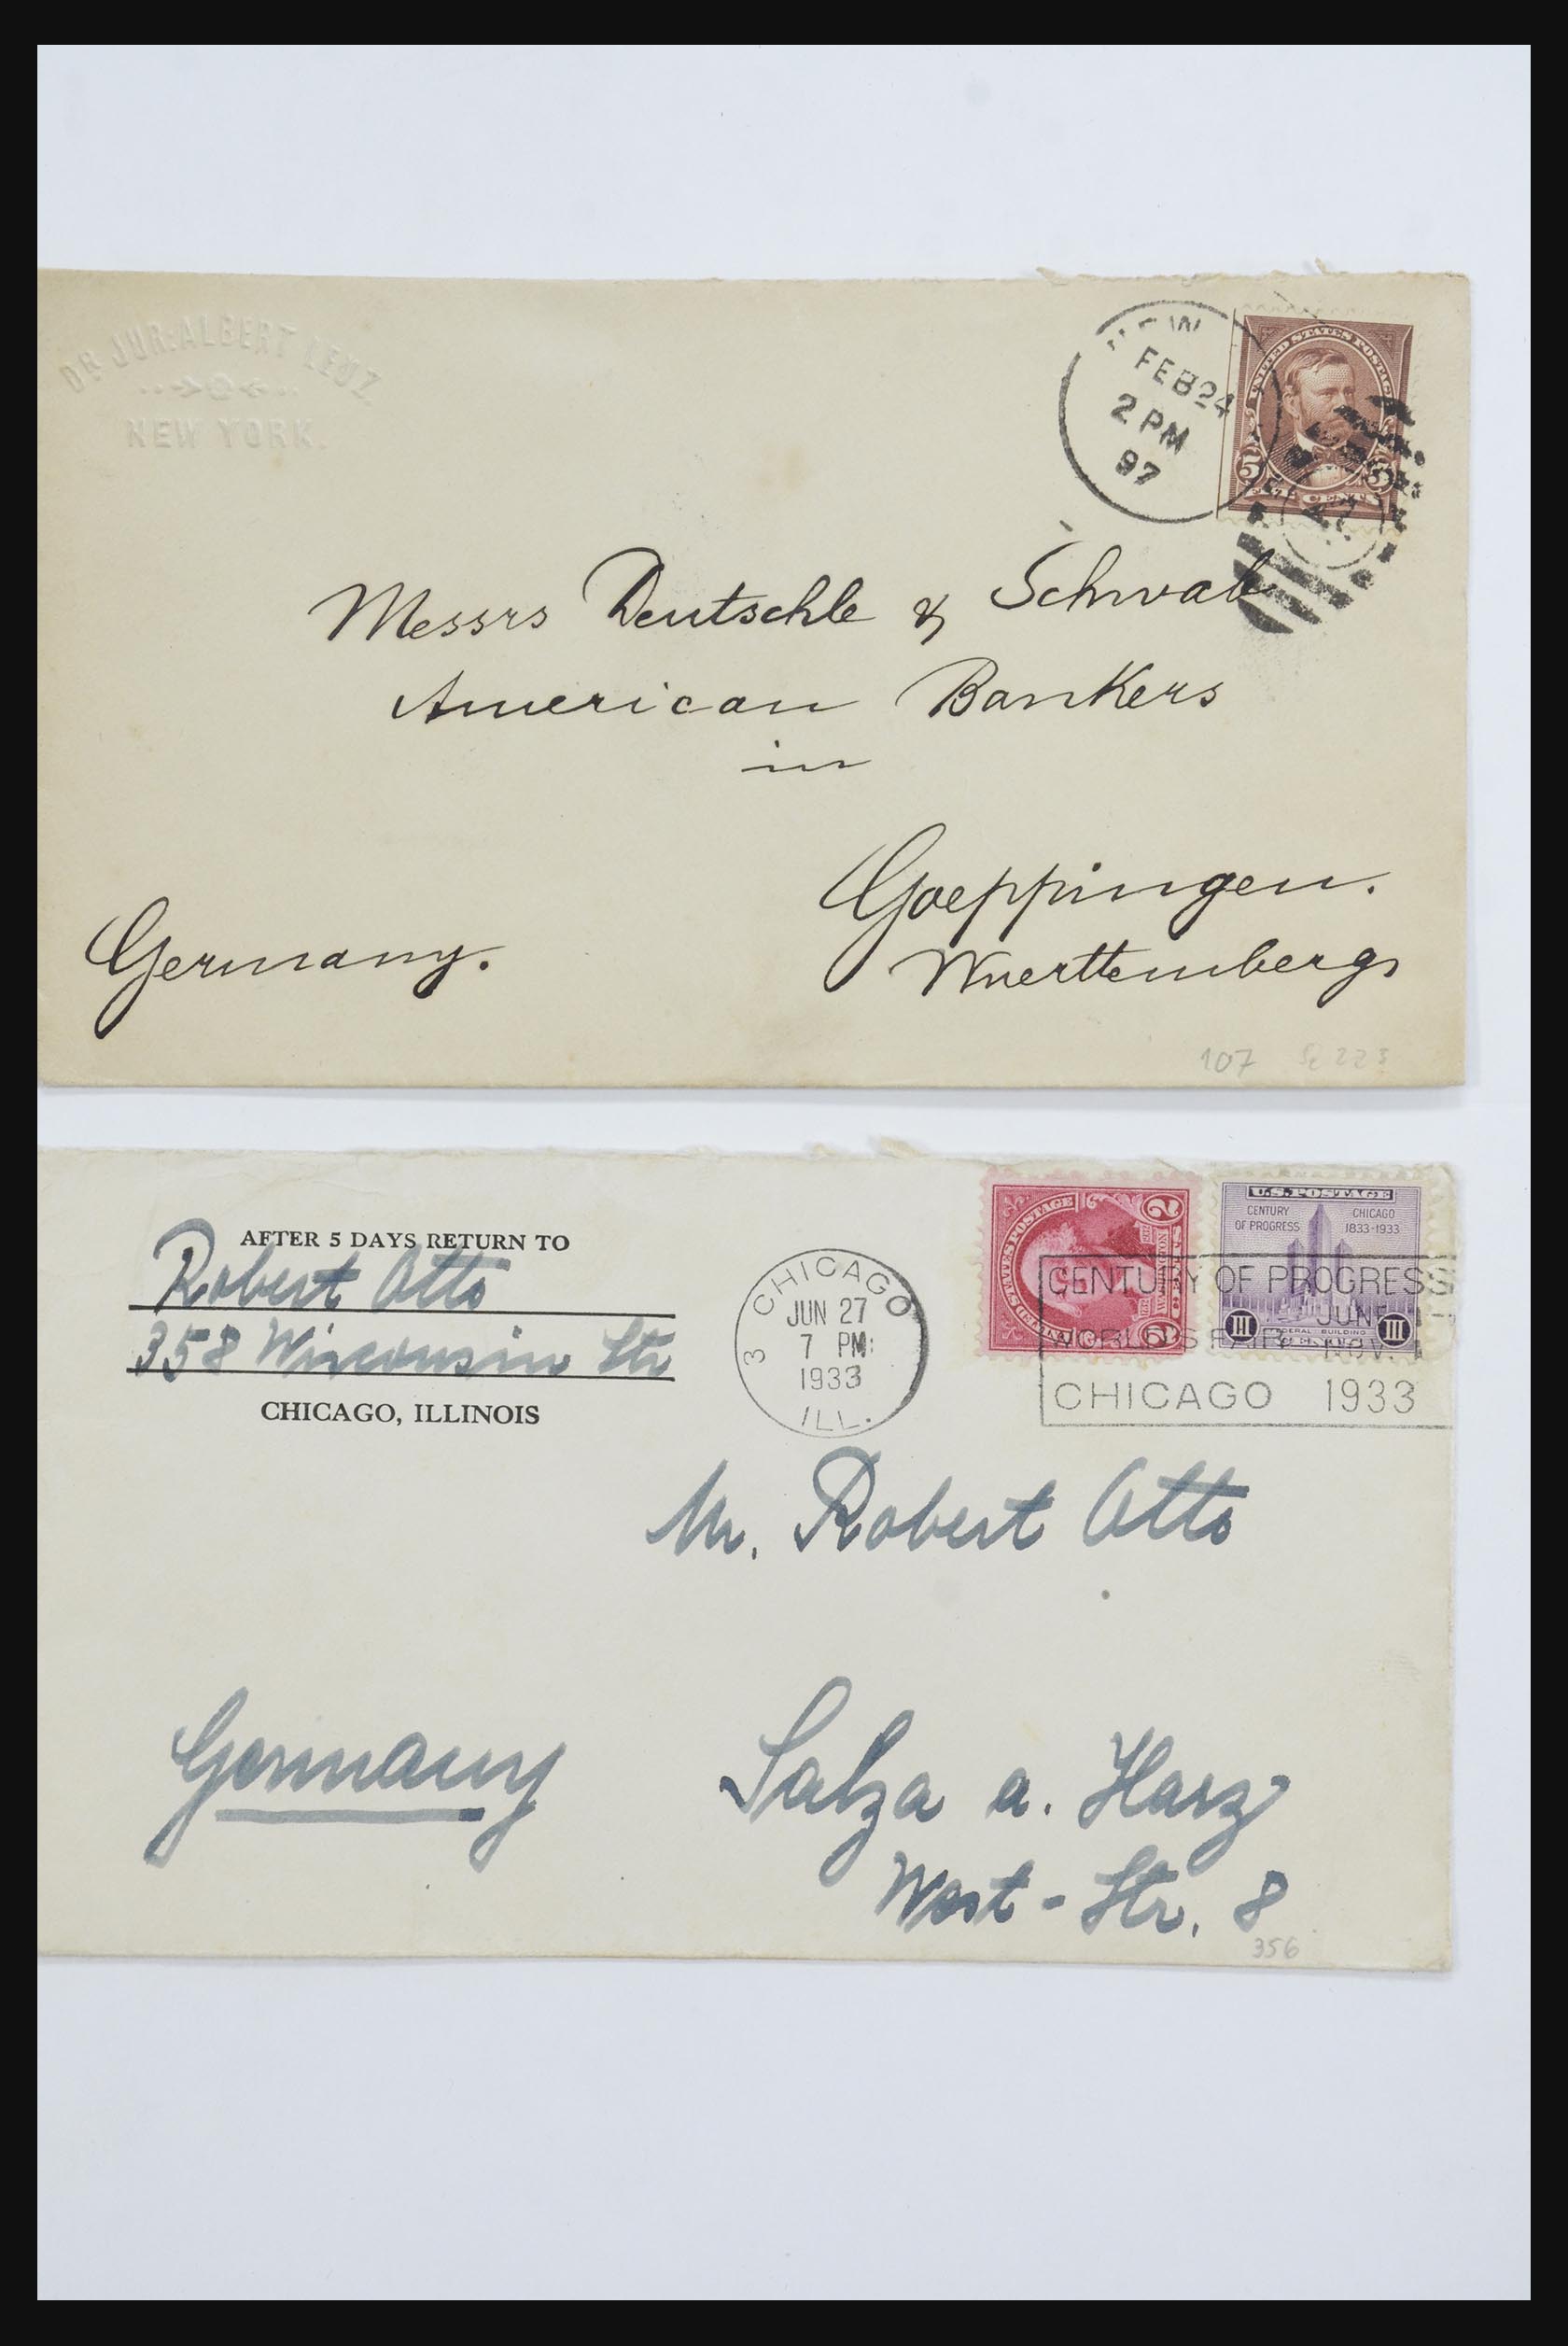 DR. JUR. ALBERT LENZ
NEW YORK.
NEW
FEB 24
2 PM
97
UNITED STATES POSTAGE
5 5
CENTS
Messrs Deutschle & Schwab
American Bankers
in
Goeppingen.
Germany.
Wuerttemberg
107 Sc 223
AFTER 5 DAYS RETURN TO
Robert Otto
358 Wisconsin Str
CHICAGO, ILLINOIS
3 CHICAGO
JUN 27
7 PM
1933
ILL.
UNITED STATES POSTAGE
2
U.S. POSTAGE
CENTURY OF PROGRESS
CHICAGO 1833-1933
III III
FEDERAL BUILDING
CENTURY OF PROGRESS
JUNE 1
WORLD'S FAIR NOV. 1
CHICAGO 1933
Mr. Robert Otto
Germany
Salza a. Harz
West-Str. 8
356